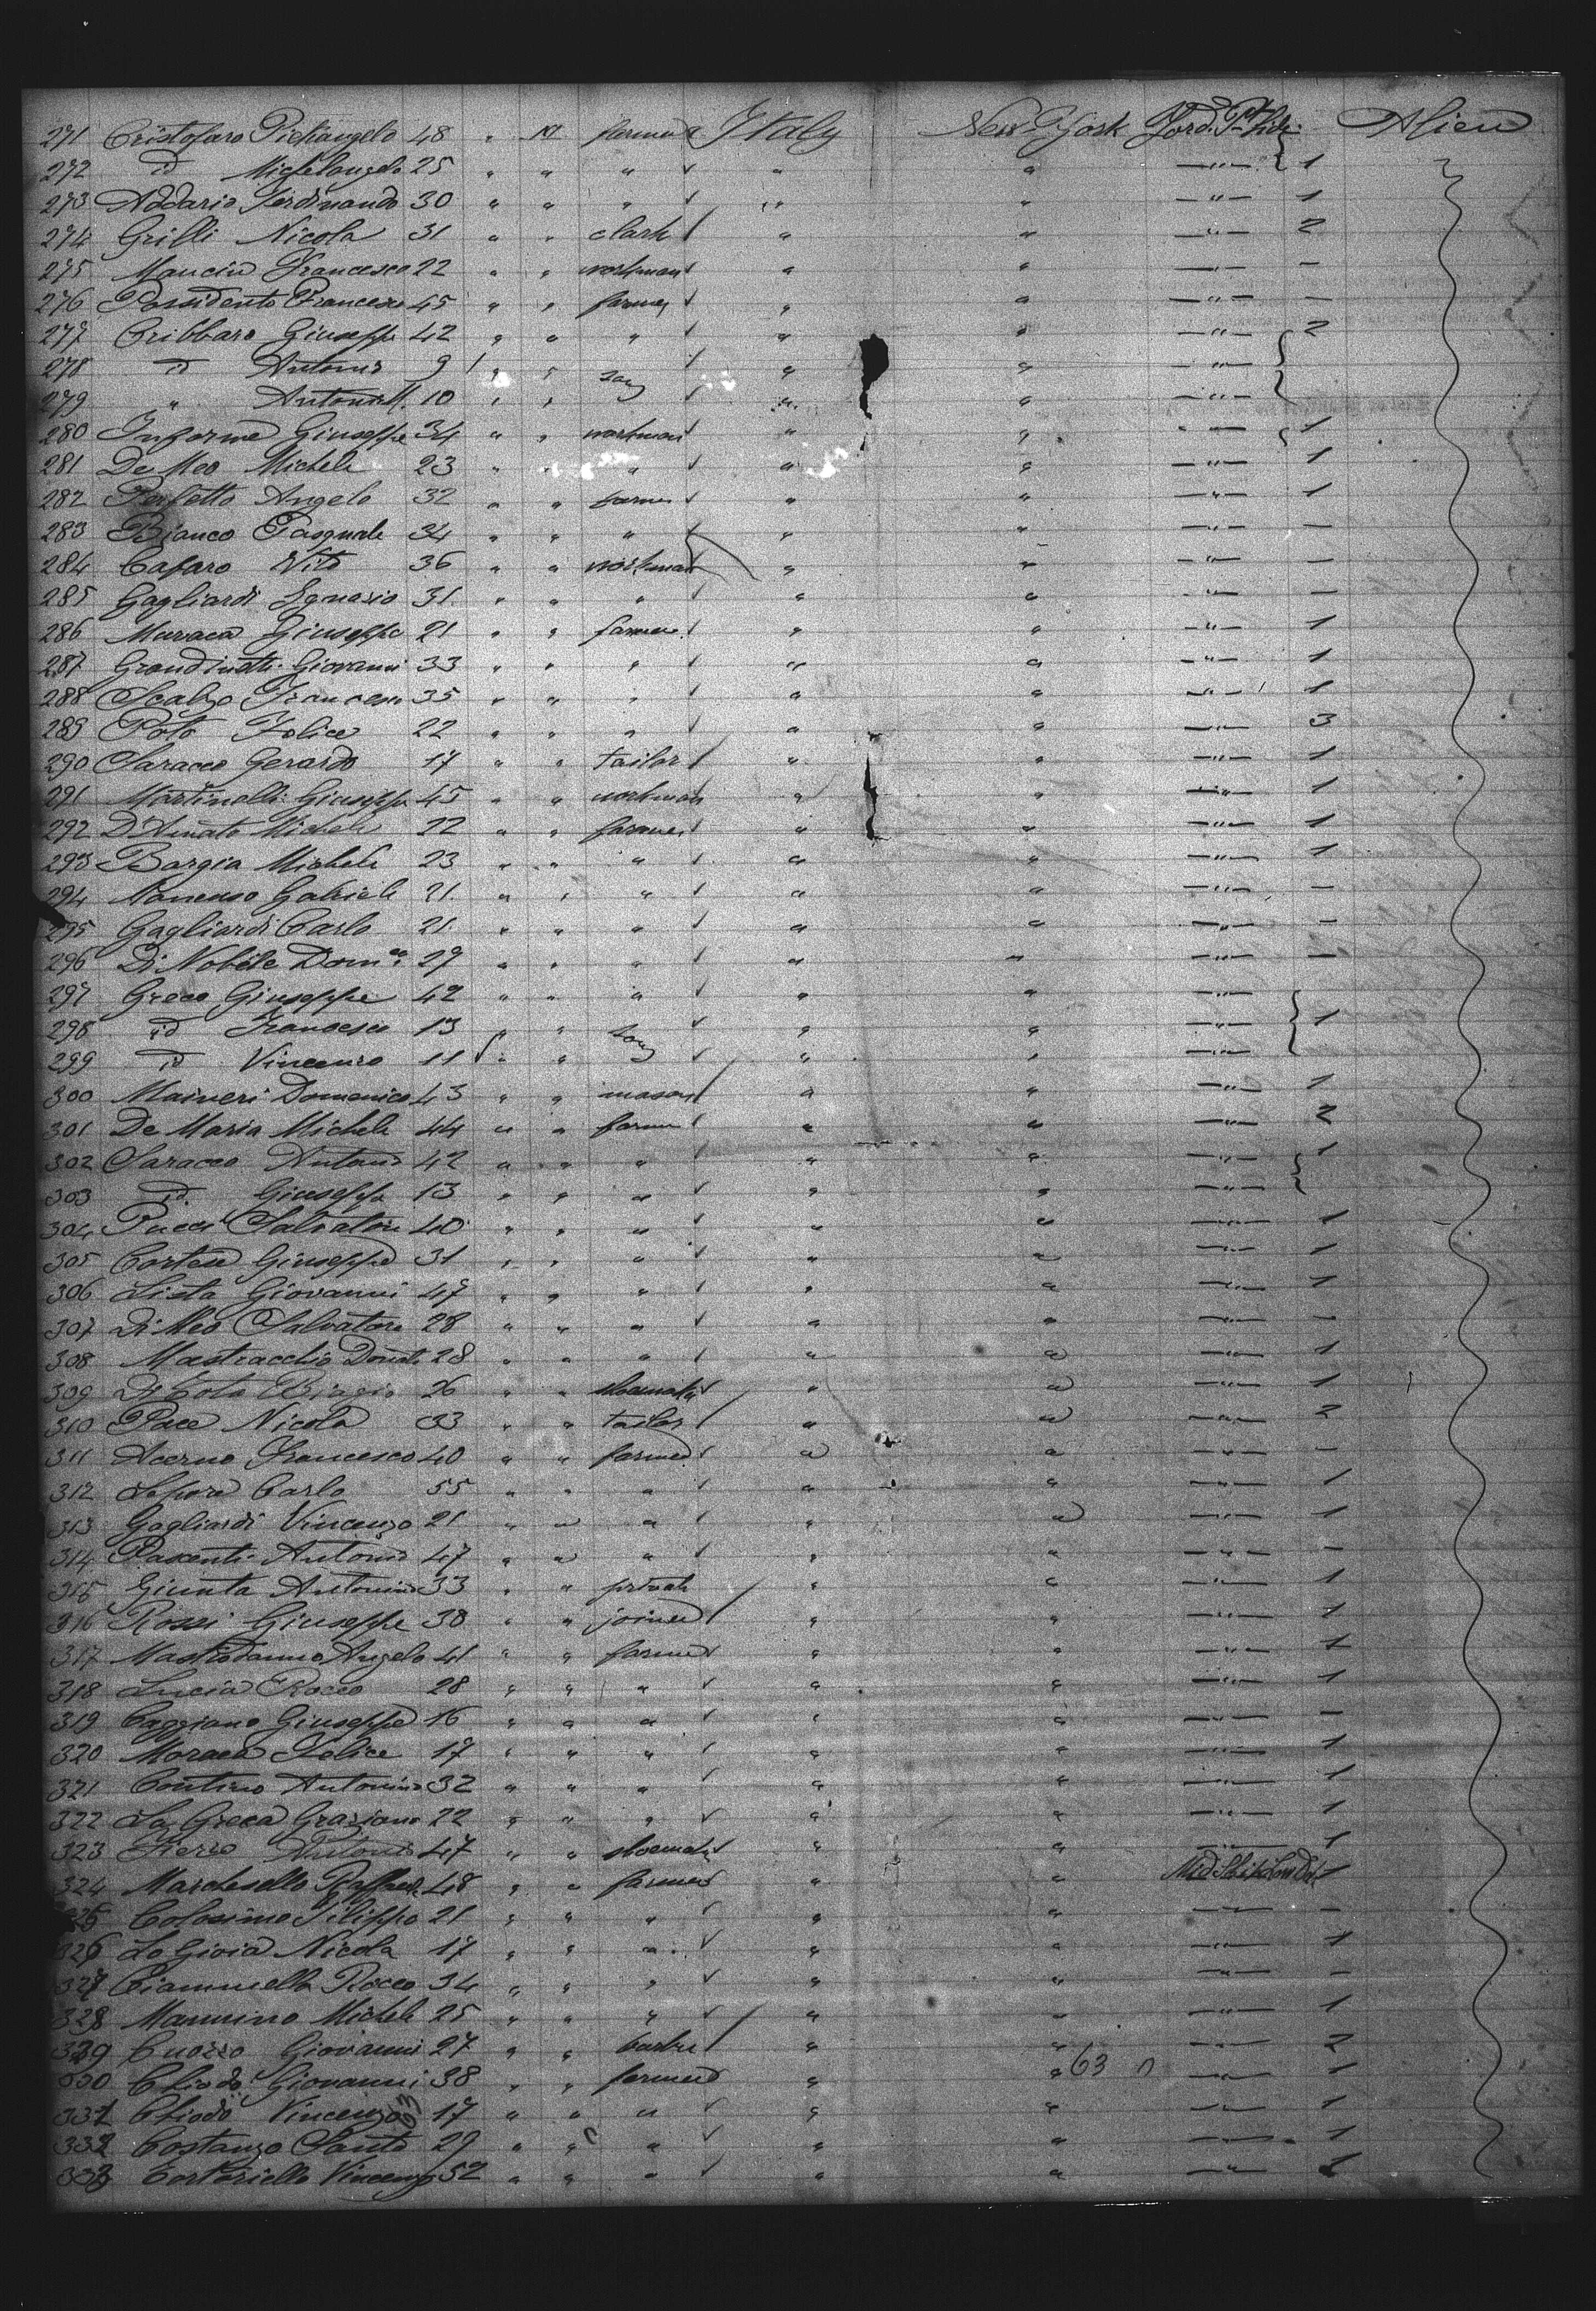 271 Cristofaro Pietrangelo 48 " M farmer Italy New-York Alien
272 id Michelangelo 25 " " " " " —"— 1
273 Addario Ferdinando 30 " " " " " —"— 1
274 Grilli Nicola 31 " " clark " " —"— 2
275 Mancini Francesco 22 " " workman " " —"— —
276 Possidento Francesco 45 " " farmer " " —"— —
277 Cribbaro Giuseppe 42 " " " " " —"— 2
278 id Antonio 9 " " " " —"—
279 " 10 " " " " —"—
280 Giuseppe 34 " " workman " " —"— 1
281 De Meo Michele 23 " " " " " —"— 1
282 Perfetto Angelo 32 " " farmer " " —"— 1
283 Bianco Pasquale 34 " " " " " —"— —
284 Cafaro Vito 36 " " workman " " —"— —
285 Gagliardi Ignazio 31 " " " " " —"— —
286 Muraca Giuseppe 21 " " farmer " " —"— 1
287 Grandinetti Giovanni 33 " " " " " —"— 1
288 Scalzo Francesco 35 " " " " " —"— 1
289 Poto Felice 22 " " " " " —"— 3
290 Saracco Gerardo 17 " " tailor " " —"— 1
291 Martinelli Giuseppe 45 " " workman " " —"— 1
292 D'Amato Michele 22 " " farmer " " —"— 1
293 Borgia Michele 23 " " " " " —"— 1
294 Gabriele 21 " " " " " —"— —
295 Gagliardi Carlo 21 " " " " " —"— —
296 Di Nobile Dom.co 29 " " " " " —"— —
297 Greco Giuseppe 42 " " " " " —"—
298 id Francesco 13 " " " " —"— 1
299 id Vincenzo 11 " " " " —"—
300 Maineri Domenico 43 " " mason " " —"— 1
301 De Maria Michele 44 " " farmer " " —"— 2
302 Saracco Antonio 42 " " " " " —"— 1
303 id Giuseppe 13 " " " " " —"—
304 Pucci Salvatore 40 " " " " " —"— 1
305 Cortese Giuseppe 31 " " " " " —"— 1
306 Lista Giovanni 47 " " " " " —"— 1
307 Di Meo Salvatore 28 " " " " " —"— —
308 Mastracchio Donato 28 " " " " " —"— 1
309 Biagio 26 " " shoemaker " " —"— 1
310 Pace Nicola 33 " " tailor " " —"— 2
311 Acerno Francesco 40 " " farmer " " —"— —
312 Lepore Carlo 55 " " " " " —"— 1
313 Gagliardi Vincenzo 21 " " " " " —"— 1
314 Antonio 47 " " " " " —"— —
315 Giunta Antonino 33 " " private " " —"— 1
316 Rossi Giuseppe 38 " " joiner " " —"— 1
317 Angelo 41 " " farmer " " —"— 1
318 Lucia Rocco 28 " " " " " —"— 1
319 Caggiano Giuseppe 16 " " " " " —"— —
320 Moraca Felice 17 " " " " " —"— 1
321 Contino Antonino 32 " " " " " —"— 1
322 La Greca Graziano 22 " " " " " —"— 1
323 Fierro Antonio 47 " " shoemaker " " —"— 1
324 Marchesello Raffaele 48 " " farmer " " 1
325 Colosimo Filippo 21 " " " " " —"— —
326 Lo Gioia Nicola 17 " " " " " —"— 1
327 Ciammella Rocco 34 " " " " " —"— —
328 Mannino Michele 25 " " " " " —"— 1
329 Cuozzo Giovanni 27 " " barber " " —"— 2
330 Chiodo Giovanni 38 " " farmer " " 63 —"— 1
331 Chiodo Vincenzo 17 " " " " " —"— 1
332 Costanzo Santo 29 " " " " " —"— 1
333 Cortoriello Vincenzo 52 " " " " " —"— 1